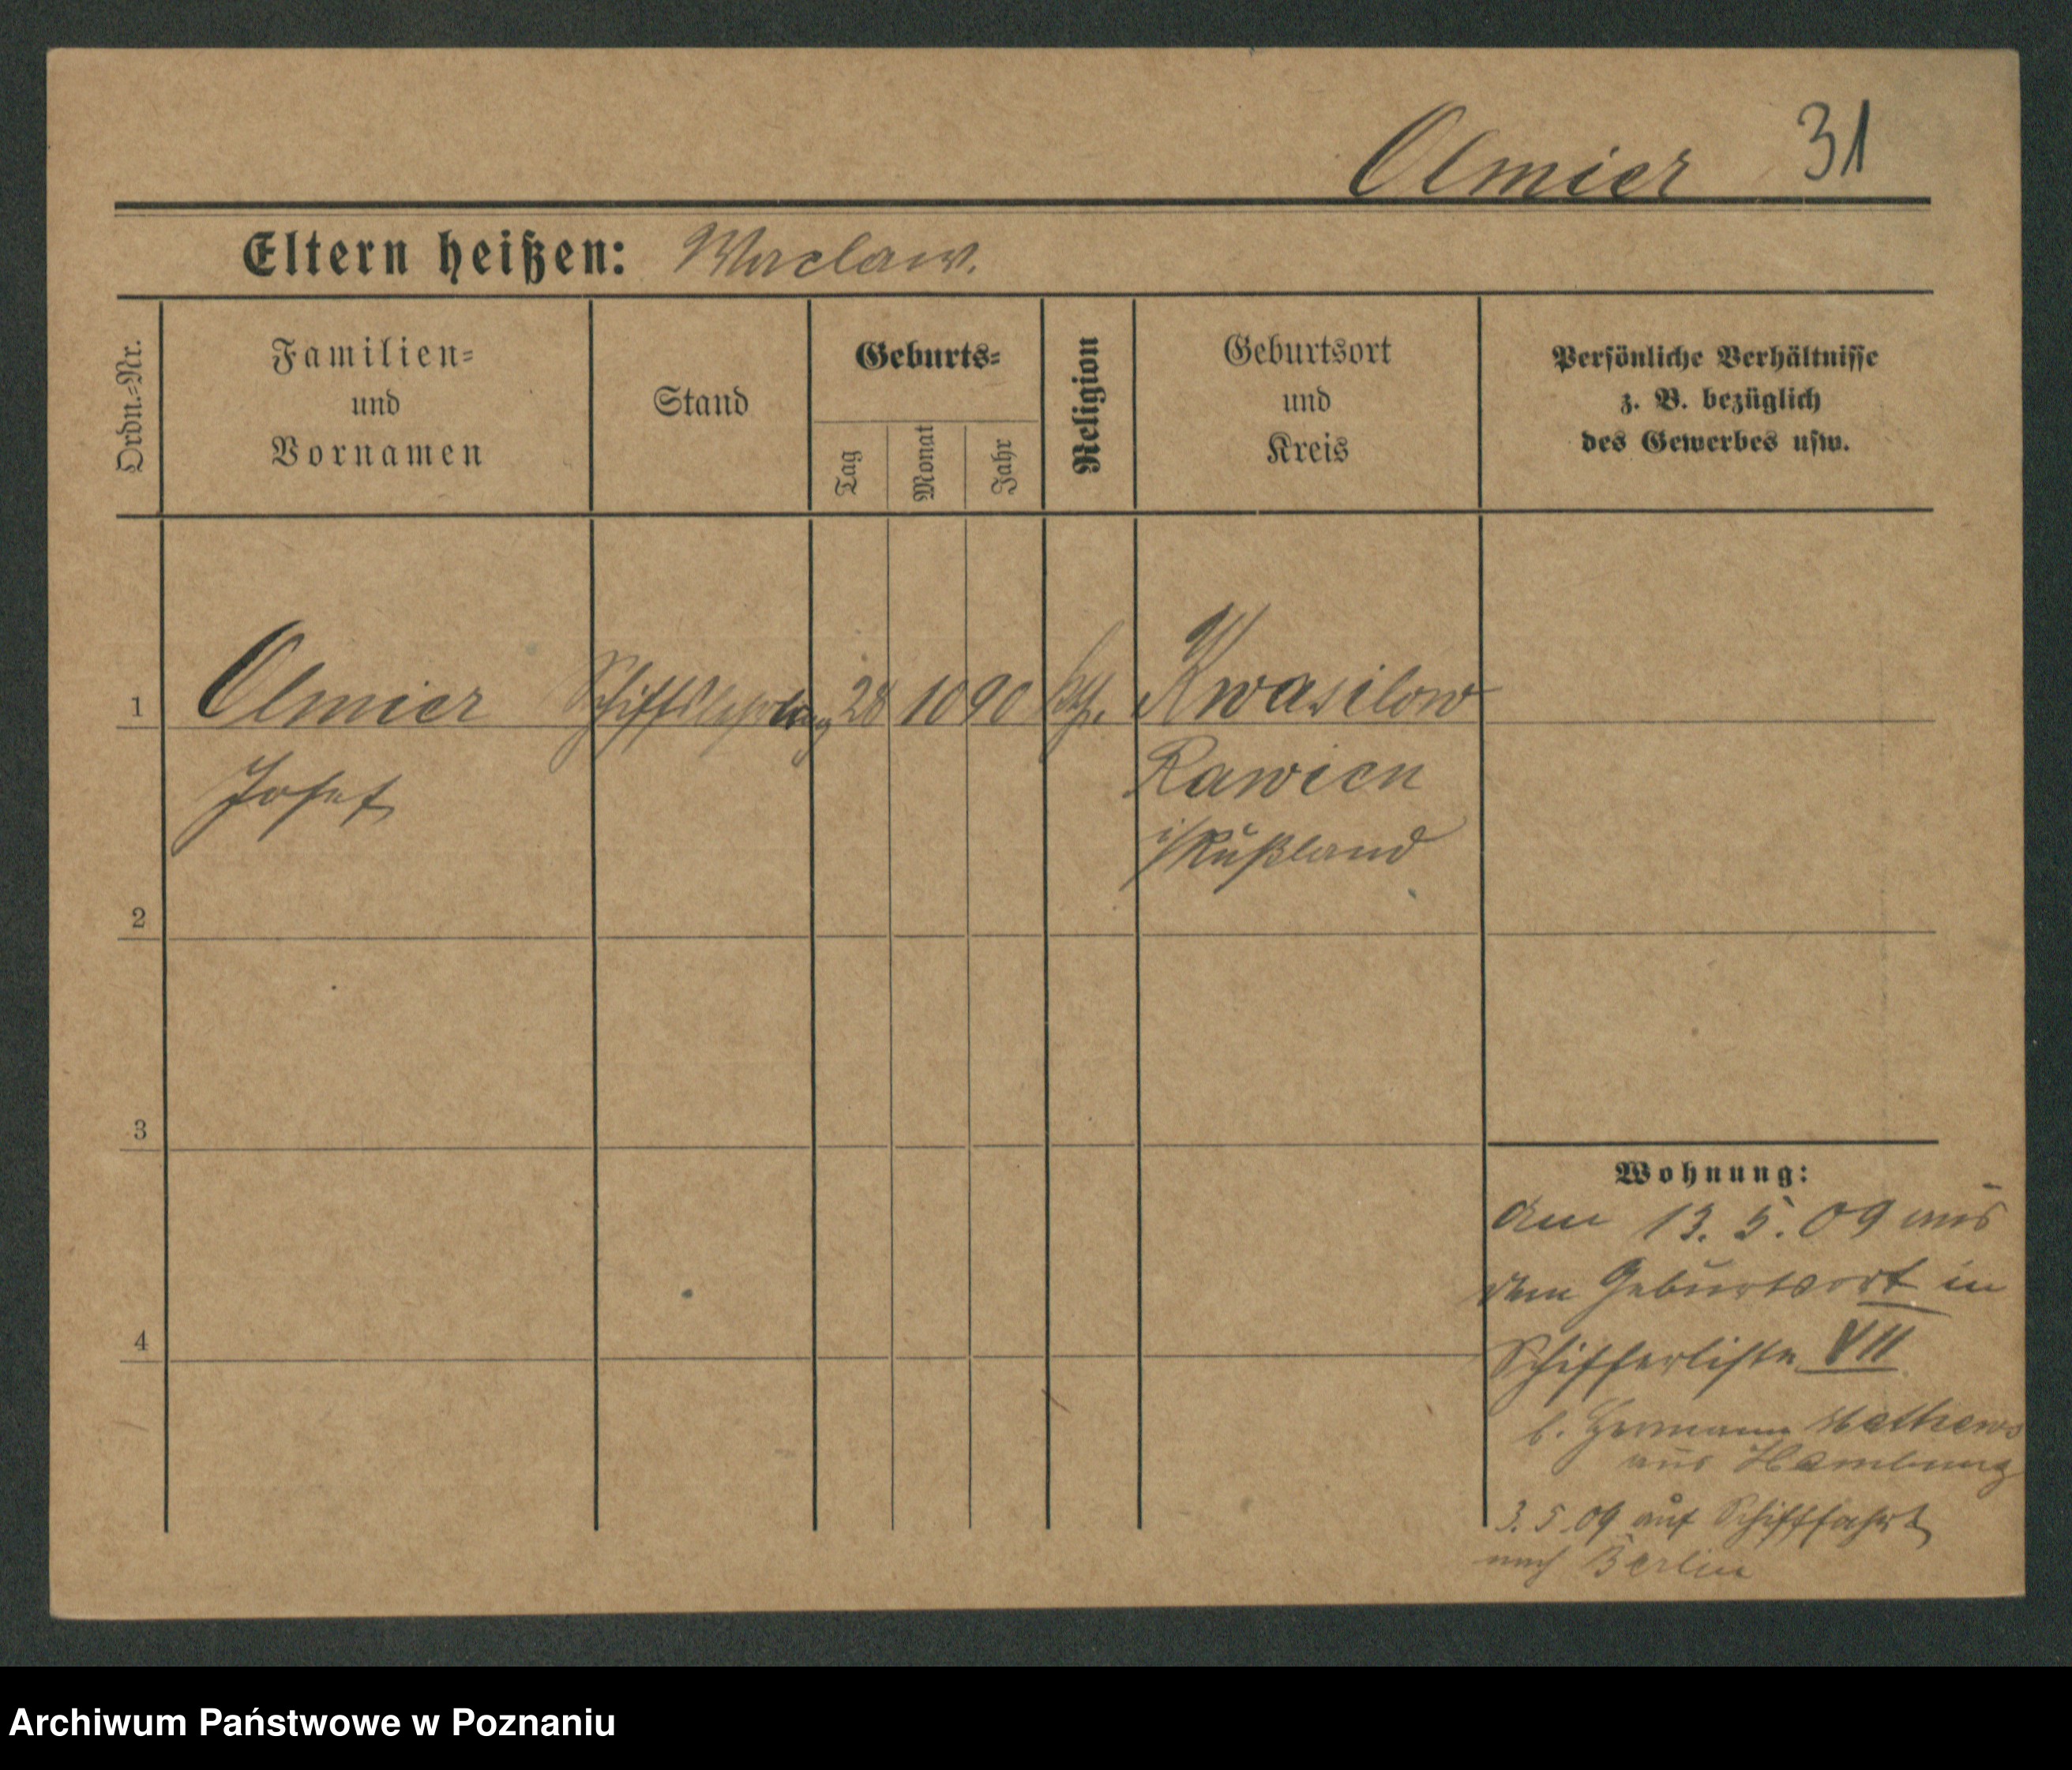 Olmier 31
Eltern heißen: Waclaw.
Ordn.=Nr.
Familien=
und
Vornamen
Stand
Geburts=
Tag
Monat
Jahr
Religion
Geburtsort
und
Kreis
Persönliche Verhältnisse
z. B. bezüglich
des Gewerbes usw.
1 Olmier 28 10 90 kth. Kwasilow
Josef Rawien
i/Rußland
2
3
4
Wohnung:
Am 13. 5. 09 aus
dem Geburtsort in
Schifferliste VII
b. Hermann Mathews
aus Hamburg
3. 5. 09 auf Schifffahrt
nach Berlin
Archiwum Państwowe w Poznaniu